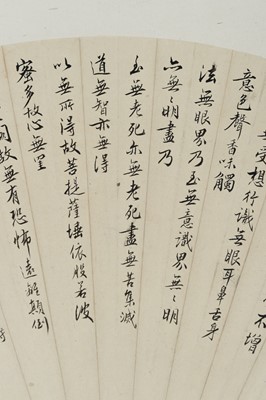 不增
受想行識無眼耳鼻舌身
意色聲香味觸
法無眼界乃至無意識界無無明
亦無無明盡乃
至無老死亦無老死盡無苦集滅
道無智亦無得
以無所得故菩提薩埵依般若波
蜜多故心無罣
故無有恐怖遠離顛倒